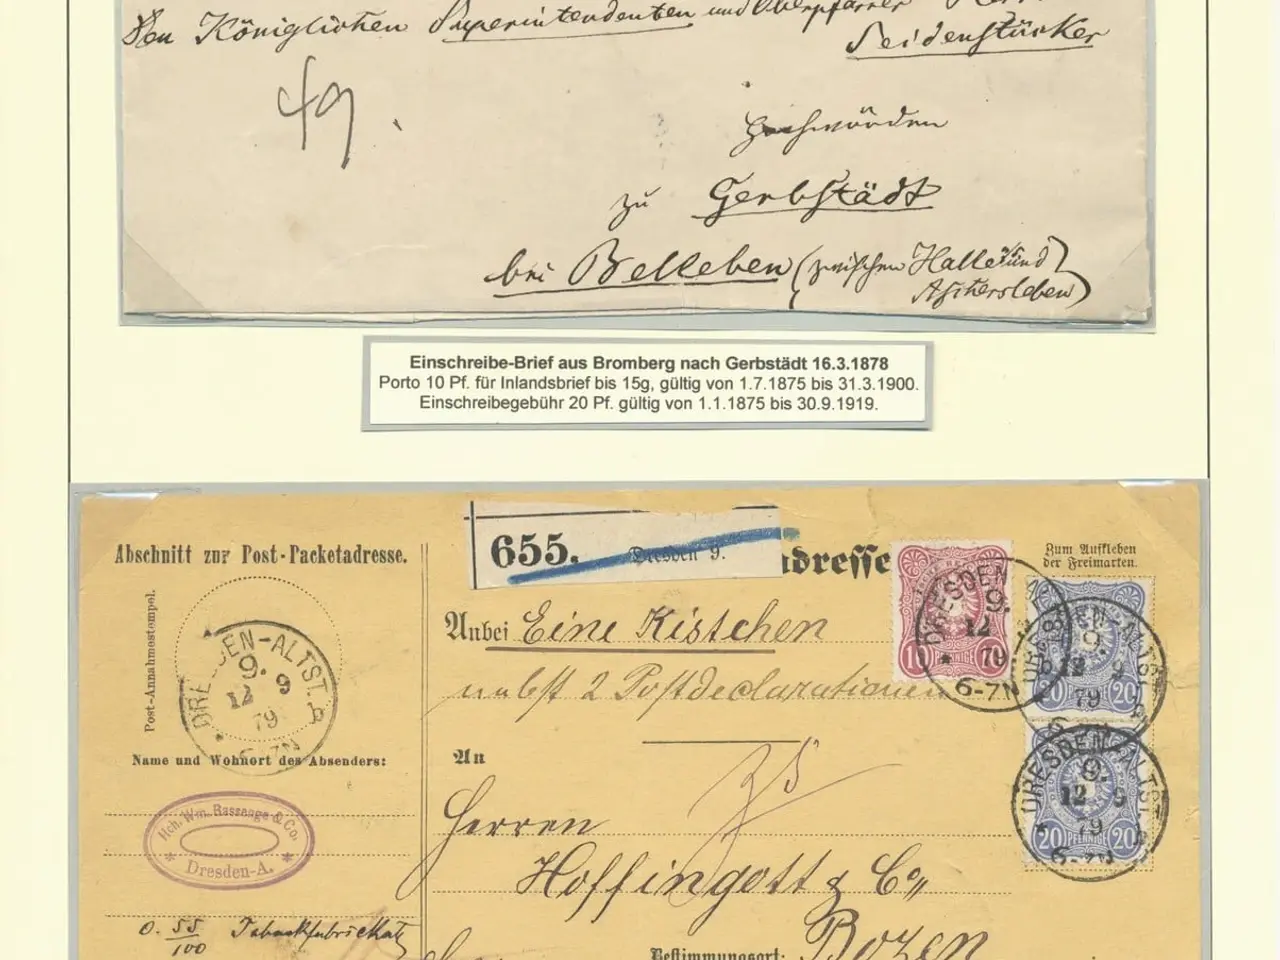 Den Königlichen Superintendenten und Oberpfarrer Herrn
Seidenstücker
49.
Hochwürden
zu Gerbstädt
bei Belleben (zwischen Halle und
Aschersleben)
Einschreibe-Brief aus Bromberg nach Gerbstädt 16.3.1878
Porto 10 Pf. für Inlandsbrief bis 15g, gültig von 1.7.1875 bis 31.3.1900.
Einschreibegebühr 20 Pf. gültig von 1.1.1875 bis 30.9.1919.
Abschnitt zur Post-Packetadresse.
Post-Annahmestempel.
DRESDEN-ALTST.
9.
12 9
79
6-7N
Name und Wohnort des Absenders:
Hch. Wm. Bassenge & Co.
Dresden-A.
0. 55/100 Tabackfabrickate
655. Dresden 9.
adresse
Zum Aufkleben
der Freimarken.
Anbei Eine Kistchen
nebst 2 Postdeclarationen
An
Herren
Hoffingott & Co,,
Bestimmungsort: Bozen
10 PFENNIGE 10
DRESDEN
9.
12
79
6-7N
20 20
DRESDEN-ALTST.
9.
12 9
79
20 PFENNIGE 20
DRESDEN-ALTST.
9.
12 9
79
6-7N